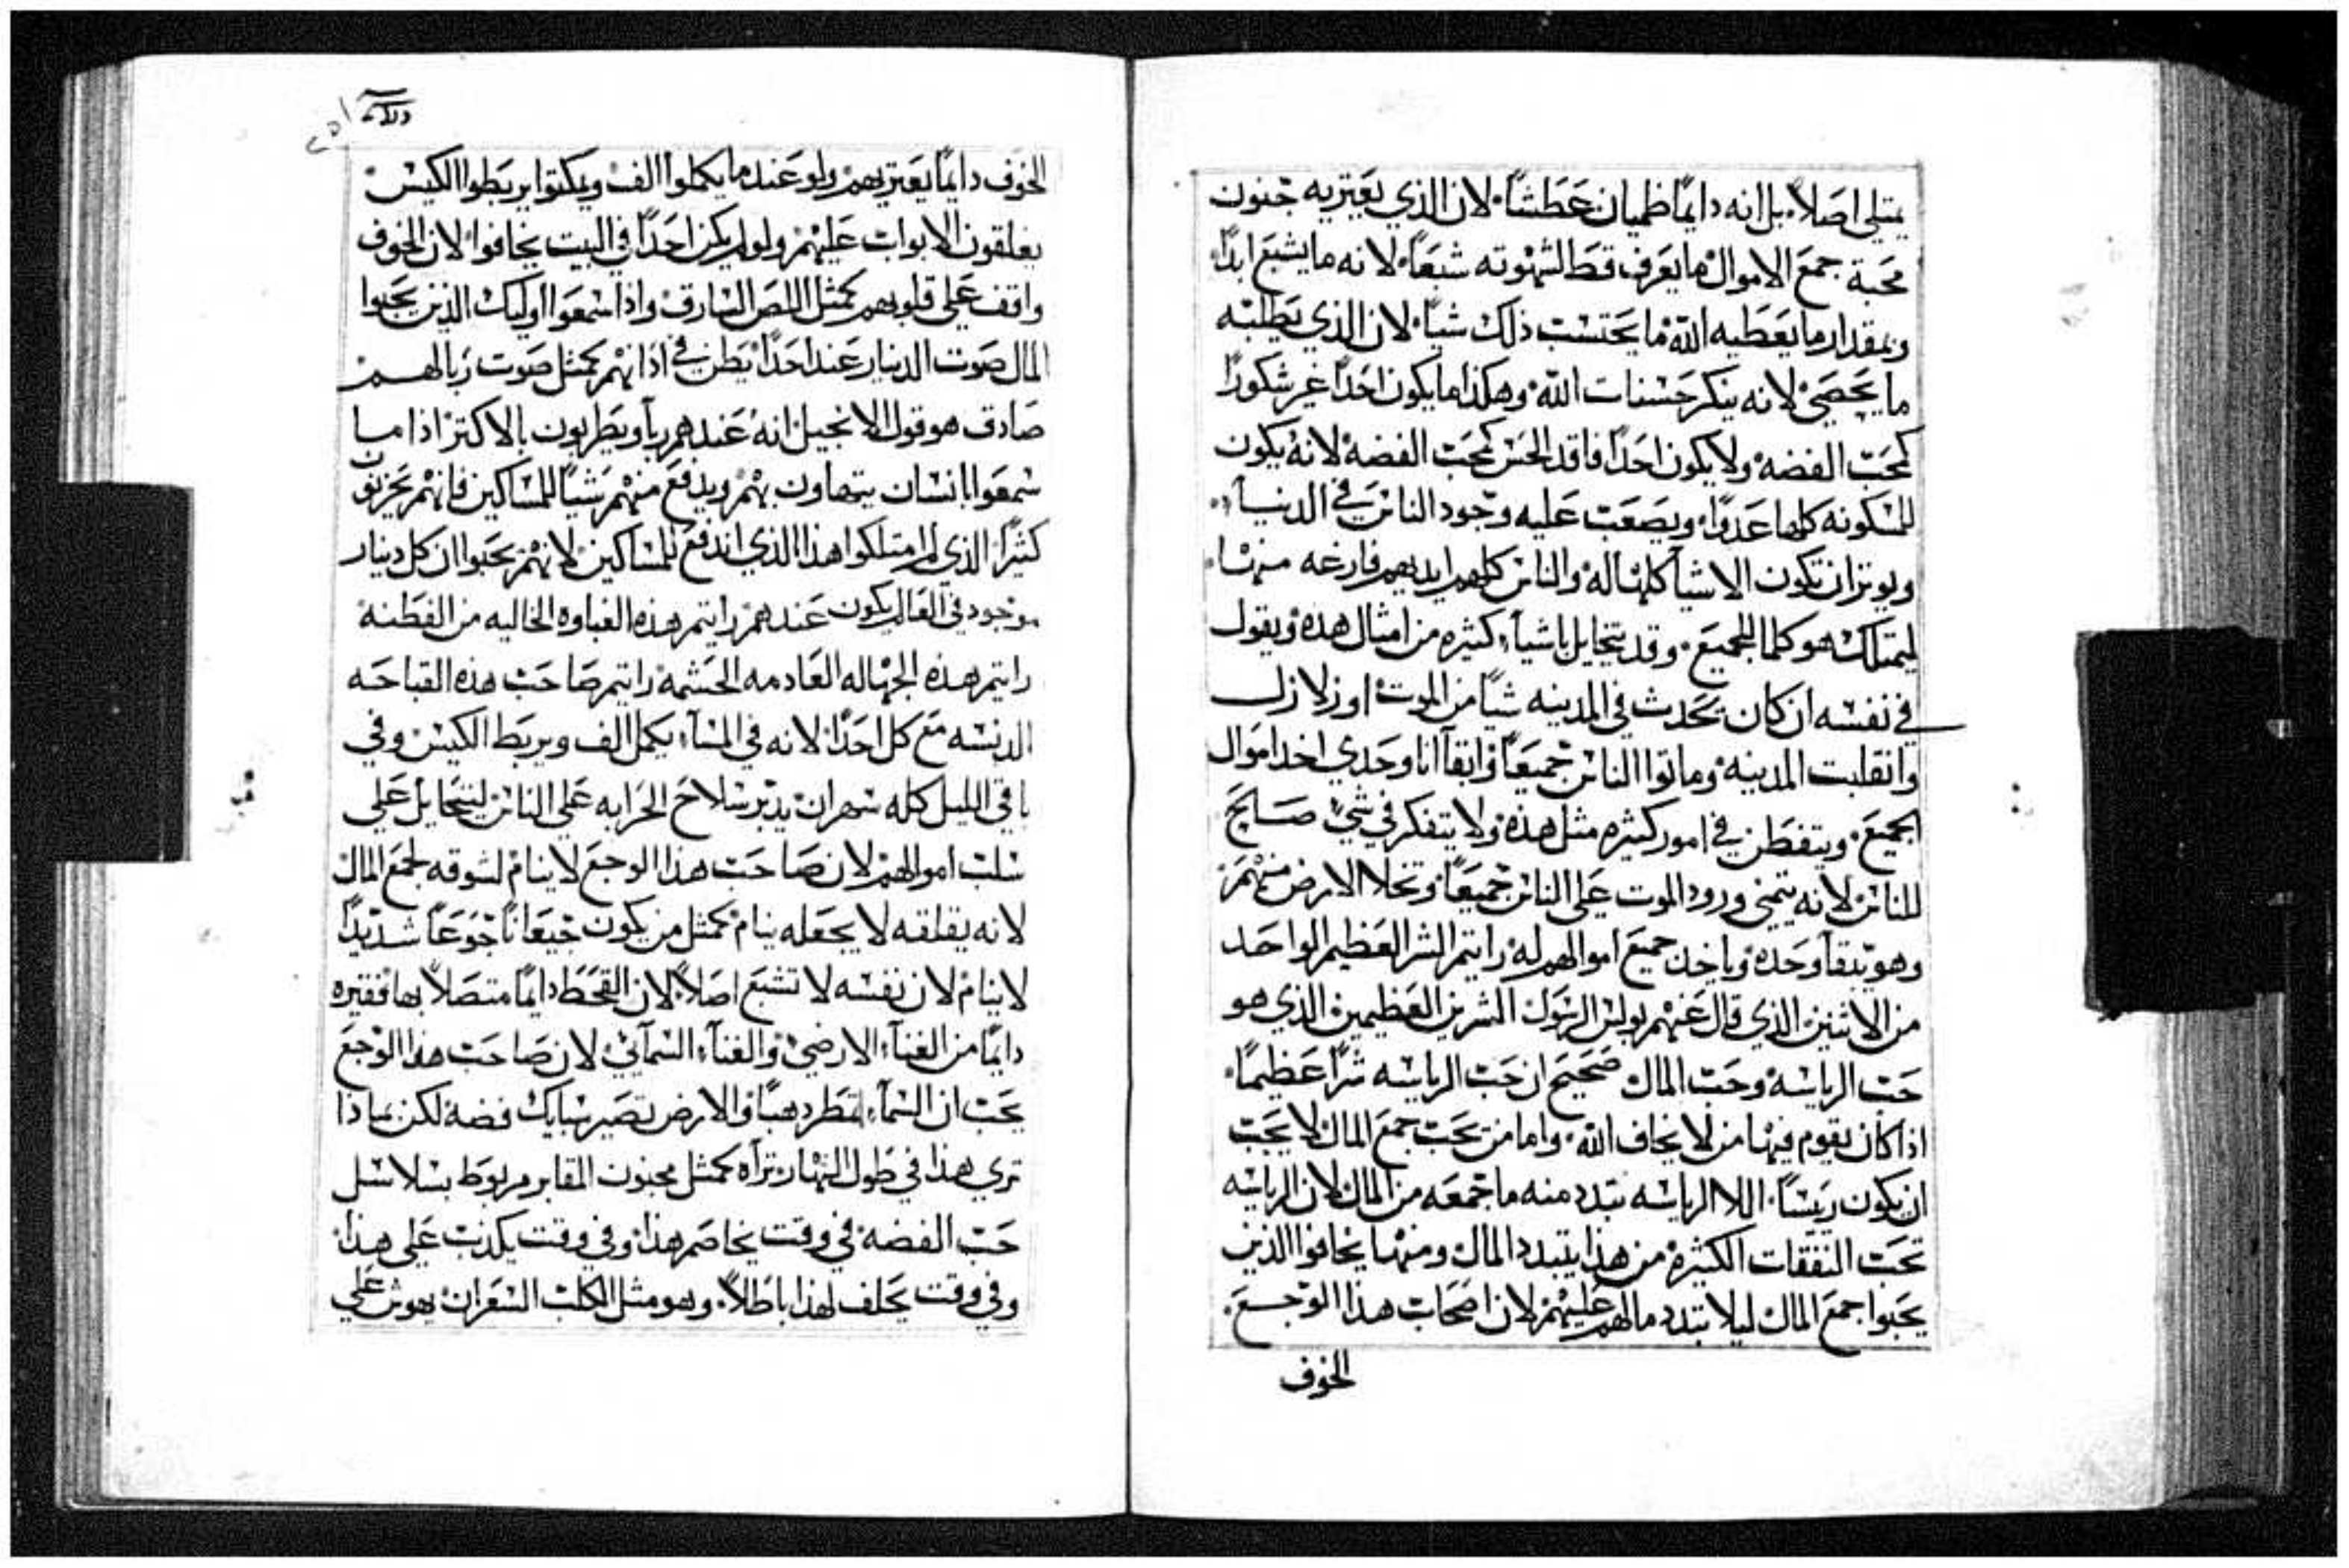 يمتلي اصلاً بل انه دايماً ظميان عطشاً لان الذي يعتريه جنون
محبة جمع الاموال ما يعرف قط لشهوته شبعاً لانه ما يشبع ابداً
وبمقدار ما يعطيه الله ما يحتسب ذلك شياً لان الذي يطلبه
ما يحصي لانه ينكر حسنات الله وهكذا ما يكون احداً غير شكوراً
كمحب الفضه ولا يكون احداً فاقد الحس كمحب الفضه لانه يكون
للمسكونه كلها عدواً ويصعب عليه وجود الناس في الدنيا
ويوتر ان تكون الاشيا كلها له والناس كلهم ايديهم فارغه منها
ليمتلك هو كلما للجميع وقد يتحايل باشيآ كثيره من امثال هذه ويقول
في نفسه ان كان يحدث في المدينه شياً من الموت او زلازل
وانقلبت المدينه وماتوا الناس جميعاً وابقآ انا وحدي اخد اموال
الجميع ويتفطن في امور كثيره مثل هذه ولا يتفكر في شي صالح
للناس لانه يتمني ورود الموت علي الناس جميعاً وتخلا الارض منهم
وهو يبقآ وحده وياخد جميع اموالهم له رايتم الشر العظيم الواحد
من الاثنين الذي قال عنهم بولس الرسول الشرين العظيمين الذي هو
حب الرياسه وحب المال صحيح ان حب الرياسه شراً عظيماً
اذا كان يقوم فيها من لا يخاف الله واما من يحب جمع المال لا يحب
ان يكون ريساً اللا الرياسه تبدد منه ما جمعه من المال لان الرياسه
تحب النفقات الكثيره من هذا يتبدد المال ومنها يخافوا الذين
يحبوا جمع المال ليلا تبدد مالهم عليهم لان اصحاب هذا الوجع
الخوف
الخوف دايماً يعتريهم ولو عند ما يكملوا الف ويكتوا يربطوا الكيس
يغلقون الابواب عليهم ولو لم يكن احداً في البيت يخافوا لان الخوف
واقف علي قلوبهم كمثل اللص السارق واذا سمعوا اوليك الذين يحبوا
المال صوت الدينار عند احداً يطن في اذانهم كمثل صوت رباً لهم
صادق هو قول الانجيل انه عندهم رباً ويطربون بالاكتر اذا ما
سمعوا بانسان يتهاون بهم ويدفع منهم شياً للمساكين فانهم يحزنون
كثيراً الذي لم امتلكوا هذا الذي اندفع للمساكين لانهم يحبوا ان كل دينار
موجود في العالم يكون عندهم رايتم هذه الغباوه الخاليه من الفطنه
رايتم هذه الجهاله العادمه الحشمه رايتم صاحب هذه القباحه
الدنسه مع كل احداً لانه في المسآ يكمل الف ويربط الكيس وفي
باقي الليل كله سهران يدبر سلاح الحرابه علي الناس ليتحايل علي
سلب اموالهم لان صاحب هذا الوجع لا ينام لشوقه لجمع المال
لانه يقلقه لا يجعله ينام كمثل من يكون جيعاناً جوعاً شديداً
لا ينام لان نفسه لا تشبع اصلاً لان القحط دايماً متصلاً بها فقيره
دايماً من الغنآ الارضي والغنآ السمآيي لان صاحب هذا الوجع
يحب ان السمآ تمطر دهباً والارض تصير سبايك فضه لكن بماذا
تري هذا في طول النهار تراه كمثل مجنون المقابر مربوط بسلاسل
حب الفضه في وقت يخاصم هذا وفي وقت يكذب علي هذا
وفي وقت يحلف لهذا باطلاً وهو مثل الكلب السعران يهوش علي